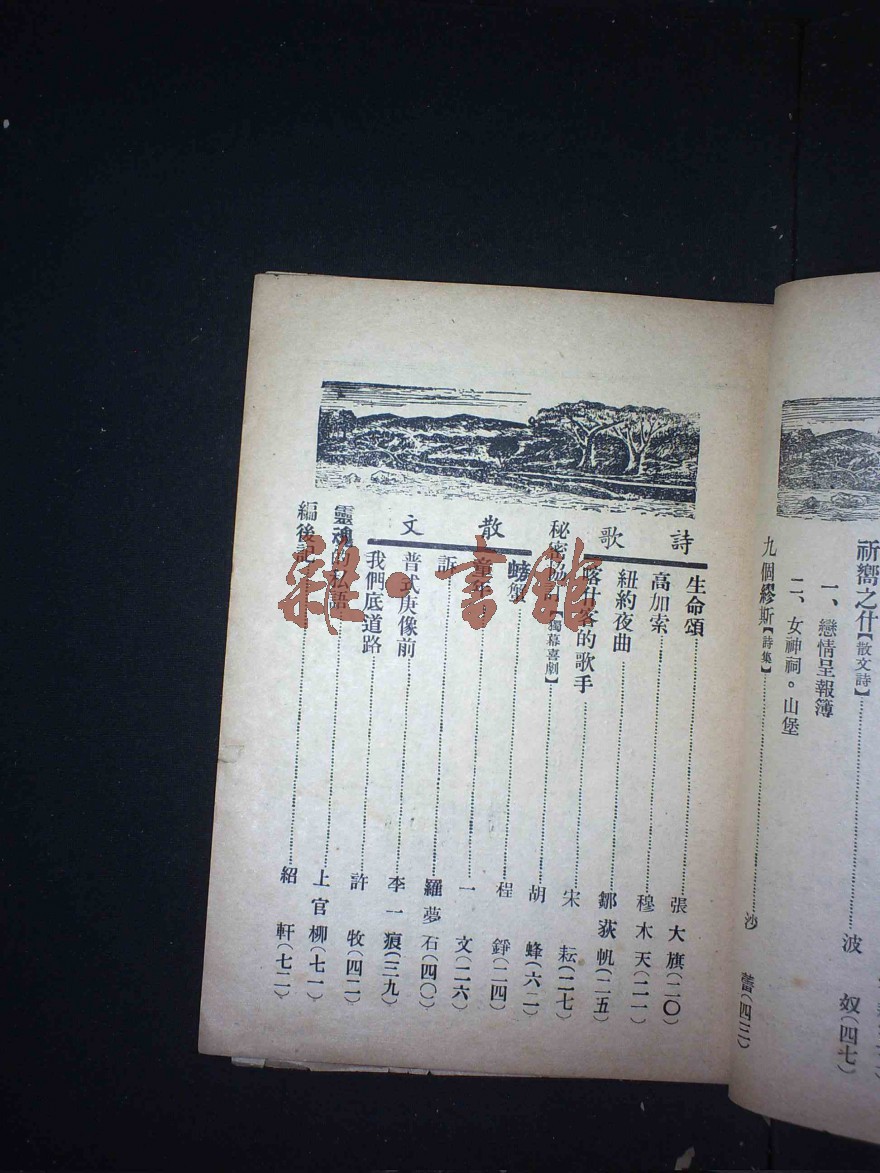 祈嚮之什【散文詩】……波 奴(四七)
一、戀情呈報簿
二、女神祠。山堡
九個繆斯【詩集】……沙 蕾(四三)
詩 歌
生命頌……張大旗(二〇)
高加索……穆木天(二一)
紐約夜曲……鄒荻帆(二五)
喀什客的歌手……宋 耘(二七)
秘密協……【獨幕喜劇】……胡 蜂(六二)
散 文
螃蟹……程 錚(二四)
童年……一 文(二六)
訴……羅夢石(四〇)
普式庚像前……李一痕(三九)
我們底道路……許 牧(四二)
靈魂的私語……上官柳(七一)
編後記……紹 軒(七二)
雜·書館